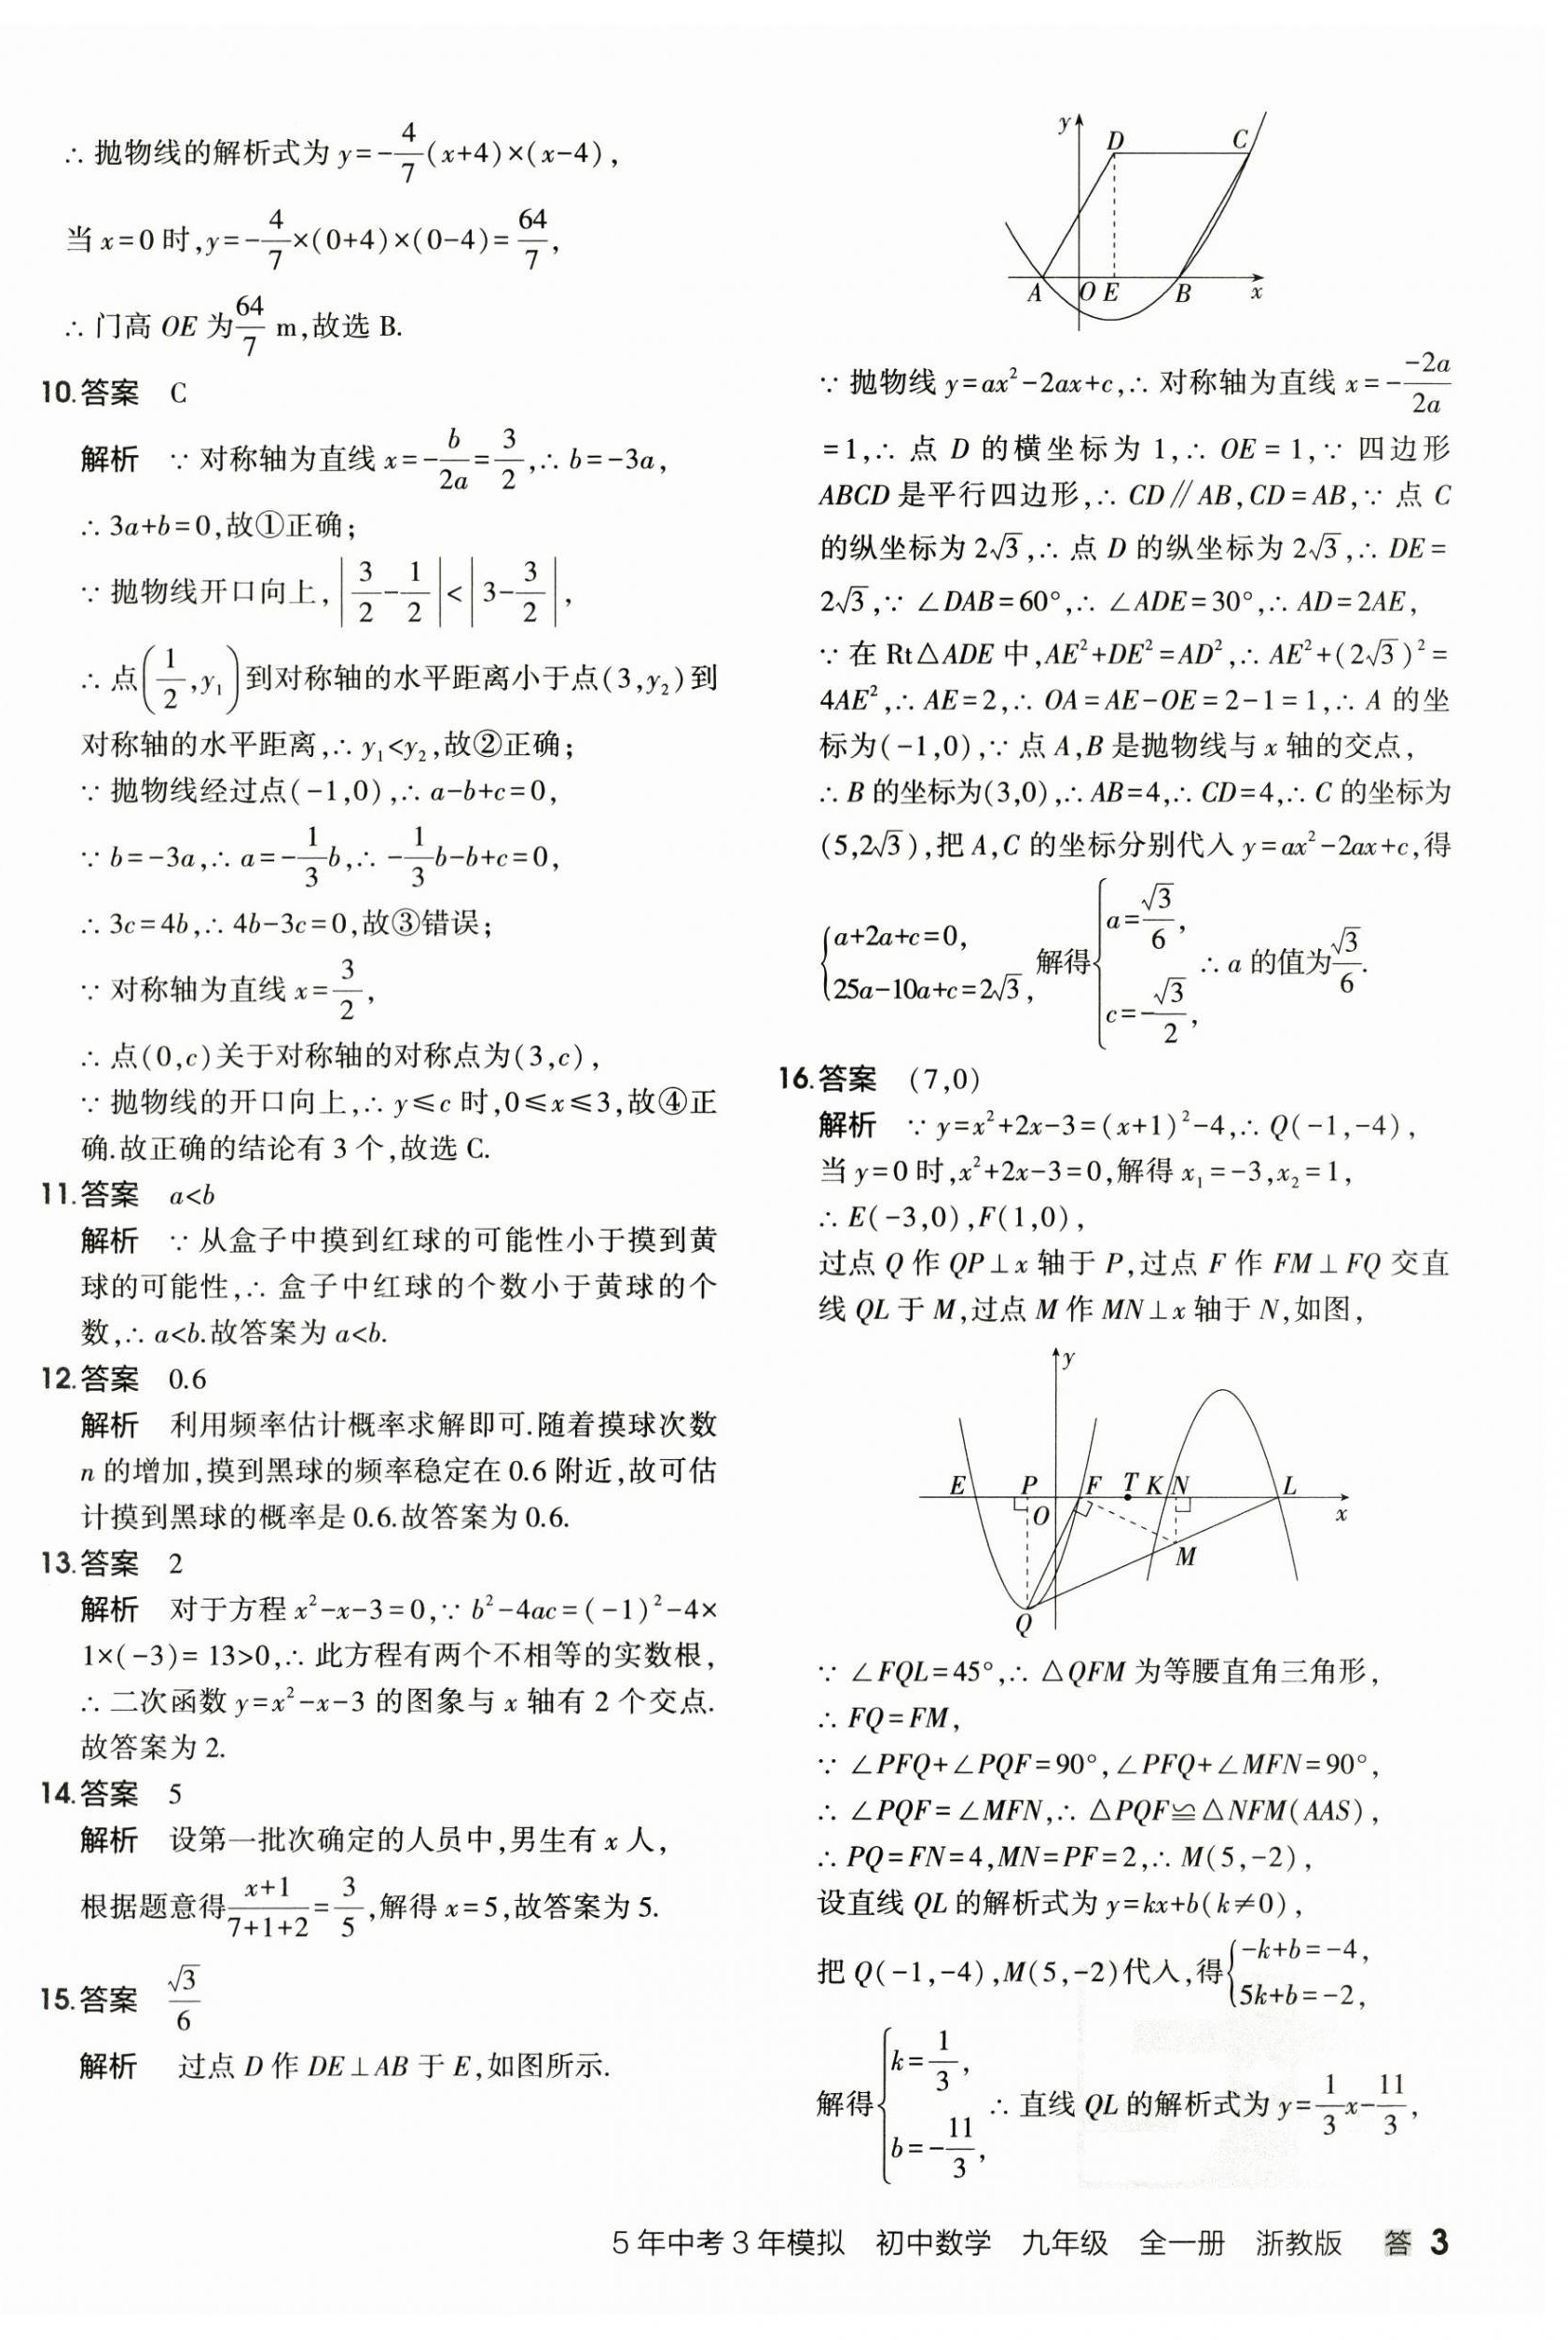 ∴ 抛物线的解析式为 y=-4/7(x+4)×(x-4),
当 x=0 时,y=-4/7×(0+4)×(0-4)=64/7,
∴ 门高 OE 为64/7 m,故选 B.
10.答案 C
解析 ∵ 对称轴为直线 x=-b/2a=3/2,∴ b=-3a,
∴ 3a+b=0,故①正确;
∵ 抛物线开口向上,|3/2-1/2|<|3-3/2|,
∴ 点(1/2,y₁)到对称轴的水平距离小于点(3,y₂)到
对称轴的水平距离,∴ y₁<y₂,故②正确;
∵ 抛物线经过点(-1,0),∴ a-b+c=0,
∵ b=-3a,∴ a=-1/3b,∴ -1/3b-b+c=0,
∴ 3c=4b,∴ 4b-3c=0,故③错误;
∵ 对称轴为直线 x=3/2,
∴ 点(0,c)关于对称轴的对称点为(3,c),
∵ 抛物线的开口向上,∴ y≤c 时,0≤x≤3,故④正
确.故正确的结论有 3 个,故选 C.
11.答案 a<b
解析 ∵ 从盒子中摸到红球的可能性小于摸到黄
球的可能性,∴ 盒子中红球的个数小于黄球的个
数,∴ a<b.故答案为 a<b.
12.答案 0.6
解析 利用频率估计概率求解即可.随着摸球次数
n 的增加,摸到黑球的频率稳定在 0.6 附近,故可估
计摸到黑球的概率是 0.6.故答案为 0.6.
13.答案 2
解析 对于方程 x²-x-3=0,∵ b²-4ac=(-1)²-4×
1×(-3)=13>0,∴ 此方程有两个不相等的实数根,
∴ 二次函数 y=x²-x-3 的图象与 x 轴有 2 个交点.
故答案为 2.
14.答案 5
解析 设第一批次确定的人员中,男生有 x 人,
根据题意得(x+1)/(7+1+2)=3/5,解得 x=5,故答案为 5.
15.答案 √3/6
解析 过点 D 作 DE⊥AB 于 E,如图所示.
y D C
A O E B x
∵ 抛物线 y=ax²-2ax+c,∴ 对称轴为直线 x=--2a/2a
=1,∴ 点 D 的横坐标为 1,∴ OE=1,∵ 四边形
ABCD 是平行四边形,∴ CD∥AB,CD=AB,∵ 点 C
的纵坐标为 2√3,∴ 点 D 的纵坐标为 2√3,∴ DE=
2√3,∵ ∠DAB=60°,∴ ∠ADE=30°,∴ AD=2AE,
∵ 在 Rt△ADE 中,AE²+DE²=AD²,∴ AE²+(2√3)²=
4AE²,∴ AE=2,∴ OA=AE-OE=2-1=1,∴ A 的坐
标为(-1,0),∵ 点 A,B 是抛物线与 x 轴的交点,
∴ B 的坐标为(3,0),∴ AB=4,∴ CD=4,∴ C 的坐标为
(5,2√3),把 A,C 的坐标分别代入 y=ax²-2ax+c,得
{a+2a+c=0, 25a-10a+c=2√3, 解得{a=√3/6, c=-√3/2, ∴ a 的值为√3/6.
16.答案 (7,0)
解析 ∵ y=x²+2x-3=(x+1)²-4,∴ Q(-1,-4),
当 y=0 时,x²+2x-3=0,解得 x₁=-3,x₂=1,
∴ E(-3,0),F(1,0),
过点 Q 作 QP⊥x 轴于 P,过点 F 作 FM⊥FQ 交直
线 QL 于 M,过点 M 作 MN⊥x 轴于 N,如图,
y
E P F T K N L
O x
M
Q
∵ ∠FQL=45°,∴ △QFM 为等腰直角三角形,
∴ FQ=FM,
∵ ∠PFQ+∠PQF=90°,∠PFQ+∠MFN=90°,
∴ ∠PQF=∠MFN,∴ △PQF≌△NFM(AAS),
∴ PQ=FN=4,MN=PF=2,∴ M(5,-2),
设直线 QL 的解析式为 y=kx+b(k≠0),
把 Q(-1,-4),M(5,-2)代入,得{-k+b=-4, 5k+b=-2,
解得{k=1/3, b=-11/3, ∴ 直线 QL 的解析式为 y=1/3x-11/3,
5 年中考 3 年模拟 初中数学 九年级 全一册 浙教版 答 3